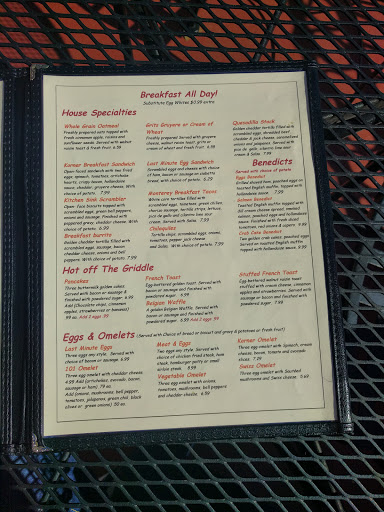 Breakfast All Day!
Substitute Egg Whites $0.99 extra
House Specialties
Whole Grain Oatmeal
Freshly prepared oats topped with
fresh cinnamon apple, raisins and
sunflower seeds. Served with walnut
raisin toast & fresh fruit 6.99
Korner Breakfast Sandwich
Open faced sandwich with two fried
eggs, spinach, tomatoes, artichoke
hearts, crispy bacon, hollandaise
sauce, cheddar, gruyere cheese. With
choice of potato. 7.99
Kitchen Sink Scrambler
Open face biscuits topped with
scrambled eggs, green bell peppers,
onions and sausage. Finished with
peppered gravy, cheddar cheese. With
choice of potato. 6.99
Breakfast Burrito
Golden cheddar tortilla filled with
scrambled eggs, sausage, bacon,
cheddar cheese, onions and bell
peppers. With choice of potato. 7.99
Grits Gruyere or Cream of
Wheat
Freshly prepared Served with gruyere
cheese, walnut raisin toast, grits or
cream of wheat and fresh fruit 4.99
Last Minute Egg Sandwich
Scrambled eggs and cheese with choice
of ham, bacon or sausage on ciabatta
bread with choice of potato. 5.79
Monterey Breakfast Tacos
White corn tortillas filled with
scrambled eggs, tomatoes, green chilies,
chorizo sausage, tortilla strips, lettuce,
pico de gallo and cilantro lime sour
cream. Served with Salsa. 7.99
Chilaquiles
Tortilla chips, scrambled eggs, onions,
tomatoes, pepper jack cheese
and Salsa. With choice of potato 7.99
Quesadilla Stack
Golden cheddar tortilla filled with
scrambled eggs, shredded beef,
cheddar & jack cheese, caramelized
onions and jalapenos. Served with
pico de gallo, cilantro lime sour
cream & Salsa 7.99
Benedicts
Served with choice of potato
Eggs Benedict
Grilled shaved ham, poached eggs on
toasted English muffin, topped with
hollandaise sauce. 7.99
Salmon Benedict
Toasted English muffins topped with
dill cream cheese spread, smoked
salmon, poached eggs and hollandaise
sauce. Finished with fresh diced
tomatoes, red onions & capers. 9.99
Crab Cake Benedict
Two golden crab cakes, poached eggs
Served on toasted English muffin
topped with hollandaise sauce. 9.99
Hot off The Griddle
Pancakes
Three buttermilk golden cakes.
Served with bacon or sausage &
finished with powdered sugar. 6.99
Add (Chocolate chips, cinnamon
apples, strawberries or bananas)
.99 ea. Add 2 eggs .99
French Toast
Egg-battered golden toast. Served with
bacon or sausage and finished with
powdered sugar. 6.99
Belgian Waffle
A golden Belgian Waffle. Served with
bacon or sausage and finished with
powdered sugar. 6.99 Add 2 eggs .99
Stuffed French Toast
Egg-battered walnut raisin toast
stuffed with cream cheese, cinnamon
apples and strawberries. Served with
sausage or bacon and finished with
powdered sugar. 7.99
Eggs & Omelets (Served with Choice of bread or biscuit and gravy & potatoes or fresh fruit)
Last Minute Eggs
Three eggs any style. Served with
choice of bacon or sausage. 6.99
101 Omelet
Three egg omelet with cheddar cheese.
4.99 Add (artichokes, avocado, bacon,
sausage or ham) .79 ea.
Add (onions, mushrooms, bell pepper,
tomatoes, jalapenos, green chili, black
olives or green onions) .50 ea.
Meat & Eggs
Two eggs any style. Served with
choice of chicken fried steak, ham
steak, hamburger patty or small
sirloin steak. 8.99
Vegetable Omelet
Three egg omelet with onions,
tomatoes, mushrooms, bell peppers
and cheddar cheese. 6.59
Korner Omelet
Three egg omelet with Spinach, cream
cheese, bacon, tomato and avocado
slices. 7.29
Swiss Omelet
Three egg omelet with Sautéed
mushrooms and Swiss cheese. 5.69